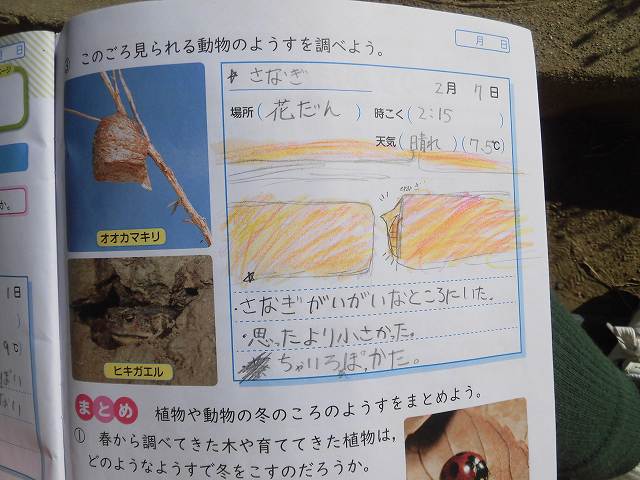 月 日
③ このごろ見られる動物のようすを調べよう。
月 日
さなぎ
2月 7日
場所(花だん) 時こく(2:15)
天気(晴れ)(7.5℃)
オオカマキリ
ヒキガエル
・さなぎがいがいなところにいた。
・思ったより小さかった。
ちゃいろぽかた。
まとめ 植物や動物の冬のころのようすをまとめよう。
① 春から調べてきた木や育ててきた植物は,
どのようなようすで冬をこすのだろうか。
か。
1日
)
9℃)
ぽい
ない